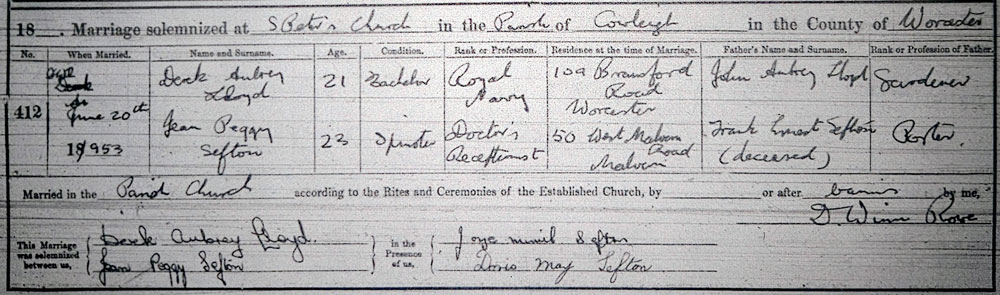 18 . Marriage solemnized at S Peter's Church in the Parish of Cowleigh in the County of Worcester
No. When Married. Name and Surname. Age. Condition. Rank or Profession. Residence at the time of Marriage. Father's Name and Surname. Rank or Profession of Father.
412 June 20th 1953 Derek Aubrey Lloyd 21 Bachelor Royal Navy 109 Bransford Road Worcester John Aubrey Lloyd Gardener
Jean Peggy Sefton 23 Spinster Doctor's Receptionist 50 West Malvern Road Malvern Frank Ernest Sefton (deceased) Porter
Married in the Parish Church according to the Rites and Ceremonies of the Established Church, by or after banns by me,
D. Winn Rowe
This Marriage was solemnized between us, Derek Aubrey Lloyd. in the Presence of us, Sefton
Jean Peggy Sefton Doris May Sefton